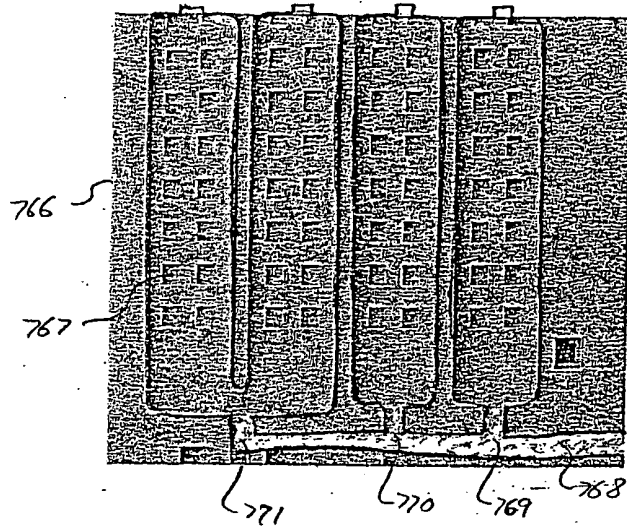 766
767
771
770
769
768